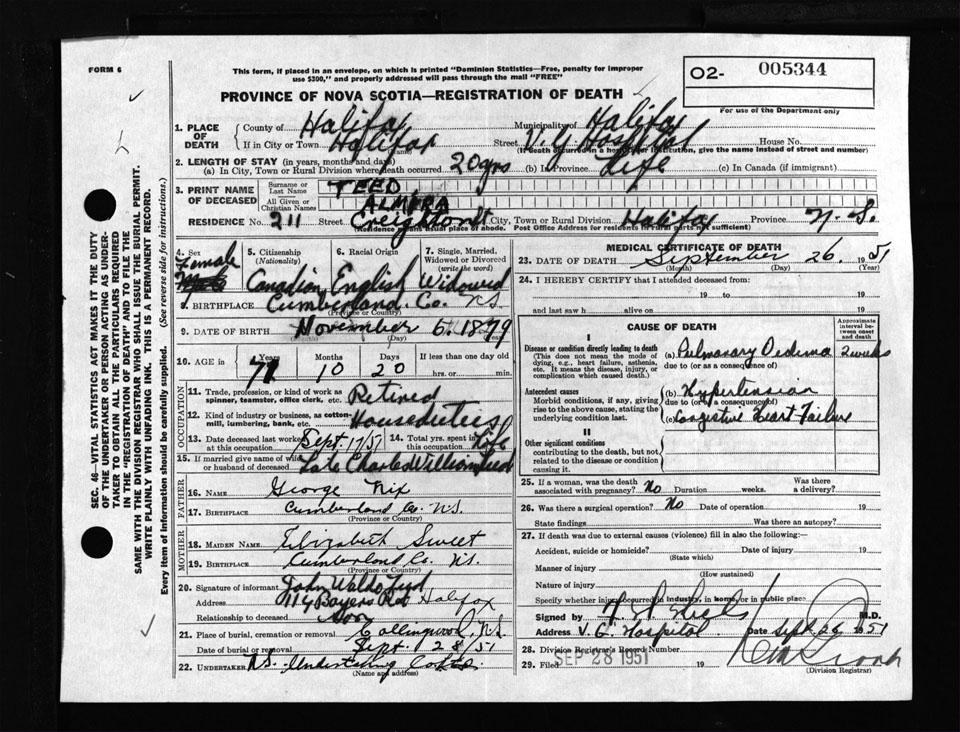 FORM 6
This form, if placed in an envelope, on which is printed "Dominion Statistics—Free, penalty for improper
use $300," and properly addressed will pass through the mail "FREE"
O2- 005344
For use of the Department only
PROVINCE OF NOVA SCOTIA—REGISTRATION OF DEATH
1. PLACE OF DEATH
County of Halifax Municipality of Halifax
If in City or Town Halifax Street V.G Hospital House No.
(If death occurred in hospital or institution, give the name instead of street and number)
2. LENGTH OF STAY (in years, months and days)
(a) In City, Town or Rural Division where death occurred 20 yrs (b) In Province Life (c) In Canada (if immigrant)
3. PRINT NAME OF DECEASED
Surname or Last Name TEED
All Given or Christian Names ALMIRA
RESIDENCE No. 211 Street Creighton St City, Town or Rural Division Halifax Province N.S.
(Residence means usual place of abode. Post Office Address for residents in Rural parts not sufficient)
4. Sex Female
5. Citizenship (Nationality) Canadian
6. Racial Origin English
7. Single, Married, Widowed or Divorced (write the word) Widowed
8. BIRTHPLACE Cumberland. Co. NS
9. DATE OF BIRTH November 6 1879
(Day)
10. AGE in Years 71 Months 10 Days 20 If less than one day old
hrs. or min.
OCCUPATION
11. Trade, profession, or kind of work as
spinner, teamster, office clerk, etc. Retired
12. Kind of industry or business, as cotton-
mill, lumbering, bank, etc. Houseduties
13. Date deceased last worked at this occupation Sept. 17/51 14. Total yrs. spent in this occupation life
15. If married give name of wife
or husband of deceased Late Charles William Teed
FATHER
16. NAME George Nix
17. BIRTHPLACE Cumberland Co. N.S.
(Province or Country)
MOTHER
18. MAIDEN NAME Elizabeth Sweet
19. BIRTHPLACE Cumberland Co. N.S.
(Province or Country)
20. Signature of informant John Waldo Teed
Address Bayers Rd Halifax
Relationship to deceased Son
21. Place of burial, cremation or removal Collingwood, N.S.
Date of burial or removal Sept. 28/51
22. UNDERTAKER N.S. Undertaking
(Name and address)
MEDICAL CERTIFICATE OF DEATH
23. DATE OF DEATH September 26, 1951
(Month) (Day) (Year)
24. I HEREBY CERTIFY that I attended deceased from:
19 to 19
and last saw h alive on 19
CAUSE OF DEATH
Approximate interval between onset and death
I
Disease or condition directly leading to death
(This does not mean the mode of
dying, e.g., heart failure, asthenia,
etc. It means the disease, injury, or
complication which caused death.)
(a) Pulmonary Oedema 2 weeks
due to (or as a consequence of)
Antecedent causes
Morbid conditions, if any, giving
rise to the above cause, stating the
underlying condition last.
(b) Hypertension
due to (or as a consequence of)
(c) Congestive Heart Failure
II
Other significant conditions
contributing to the death, but not
related to the disease or condition
causing it.
25. If a woman, was the death
associated with pregnancy? No Duration weeks. Was there a delivery?
26. Was there a surgical operation? No Date of operation 19
State findings Was there an autopsy?
27. If death was due to external causes (violence) fill in also the following:—
Accident, suicide or homicide? Date of injury 19
(State which)
Manner of injury
(How sustained)
Nature of injury
Specify whether injury occurred in industry, in home, or in public place
Signed by M.D.
Address V. G. Hospital Date Sept 26 1951
28. Division Registrar's Record Number
29. Filed SEP 28 1951 19
(Division Registrar)
SEC. 46—VITAL STATISTICS ACT MAKES IT THE DUTY
OF THE UNDERTAKER OR PERSON ACTING AS UNDER-
TAKER TO OBTAIN ALL THE PARTICULARS REQUIRED
IN THE "REGISTRATION OF DEATH" AND TO FILE THE
SAME WITH THE DIVISION REGISTRAR WHO SHALL ISSUE THE BURIAL PERMIT.
WRITE PLAINLY WITH UNFADING INK. THIS IS A PERMANENT RECORD.
Every item of information should be carefully supplied. (See reverse side for instructions.)